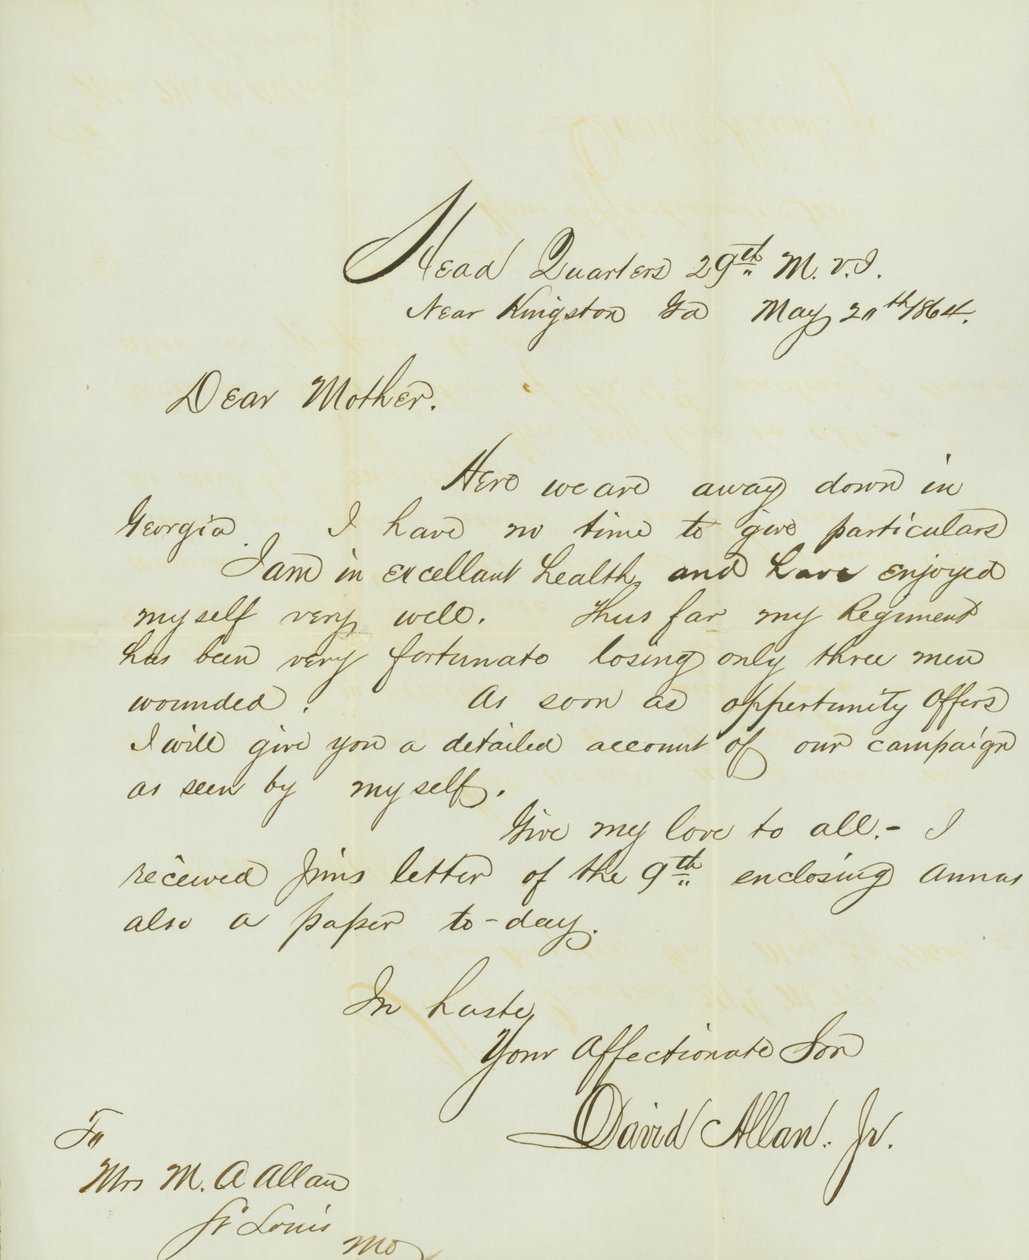 Head Quarters 29th M. V. I.
Near Kingston Ga May 20th 1864.
Dear Mother.
Here we are away down in
Georgia. I have no time to give particulars
I am in excellant health, and have enjoyed
myself very well. Thus far my Regiment
has been very fortunate losing only three men
wounded. As soon as oppertunity offers
I will give you a detailed account of our campaign
as seen by myself.
Give my love to all. - I
received Jims letter of the 9th enclosing Annas
also a paper to-day.
In haste,
Your Affectionate Son
David Allan. Jr.
To
Mrs M. A Allan
St Louis
Mo